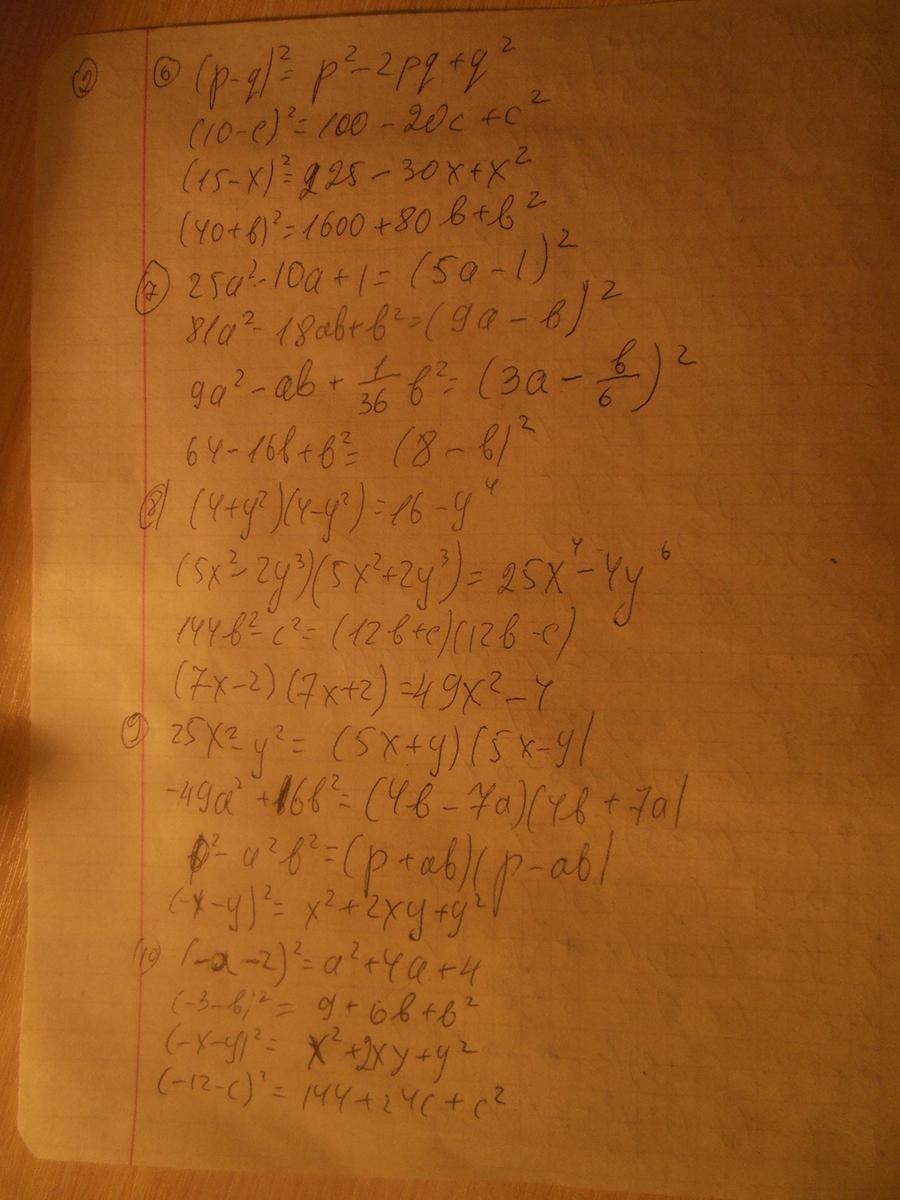 ② ⑥ (p-q)² = p² - 2pq + q²
(10-c)² = 100 - 20c + c²
(15-x)² = 225 - 30x + x²
(40+b)² = 1600 + 80b + b²
⑦ 25a² - 10a + 1 = (5a - 1)²
81a² - 18ab + b² = (9a - b)²
9a² - ab + 1/36 b² = (3a - b/6)²
64 - 16b + b² = (8 - b)²
⑧ (4+y²)(4-y²) = 16 - y⁴
(5x² - 2y³)(5x² + 2y³) = 25x⁴ - 4y⁶
144b² - c² = (12b+c)(12b-c)
(7x-2)(7x+2) = 49x² - 4
⑨ 25x² - y² = (5x+y)(5x-y)
-49a² + 16b² = (4b - 7a)(4b + 7a)
p² - a²b² = (p + ab)(p - ab)
(-x-y)² = x² + 2xy + y²
⑩ (-a-2)² = a² + 4a + 4
(-3-b)² = 9 + 6b + b²
(-x-y)² = x² + 2xy + y²
(-12-c)² = 144 + 24c + c²